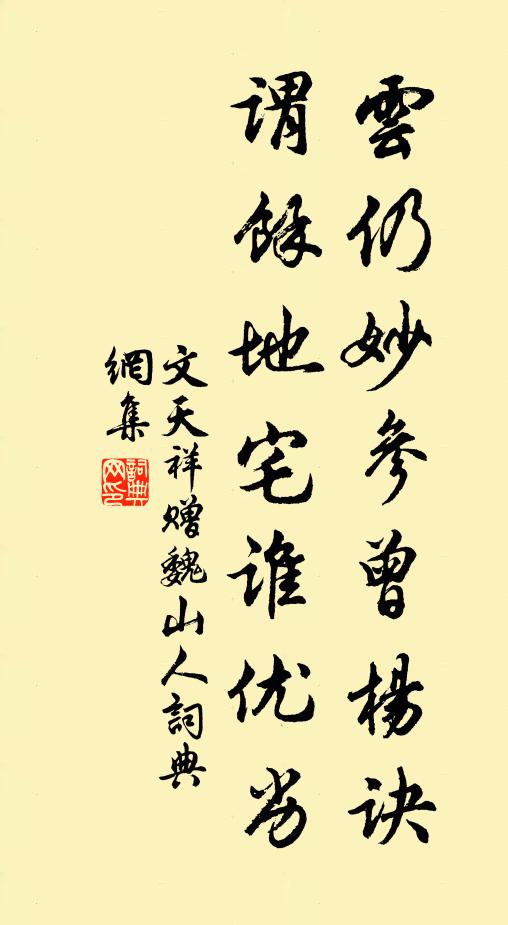 雲仍妙參曾楊訣
謂餘地宅誰优劣
文天祥贈魏山人詞典
網集
詞典
网印